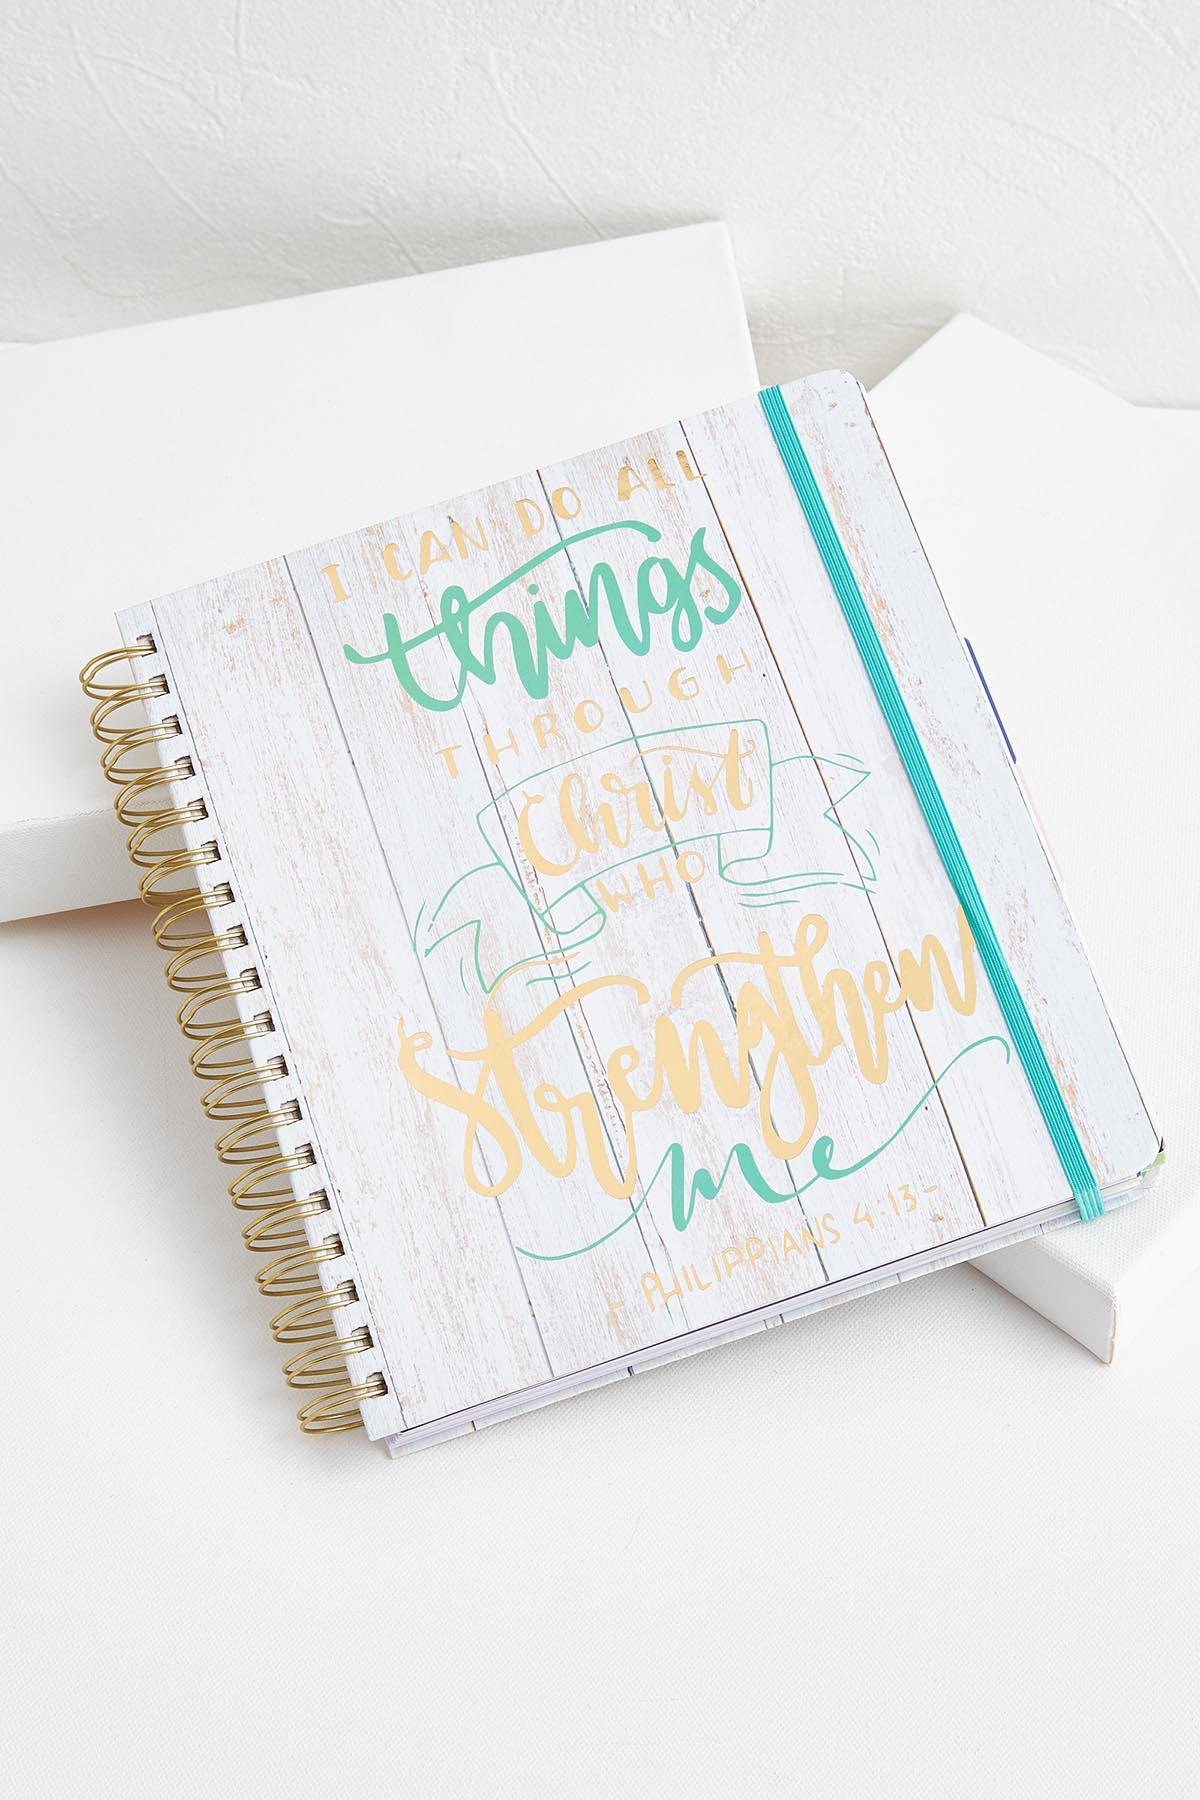 I CAN DO ALL
things
THROUGH
Christ
WHO
Strengthen
me
- PHILIPPIANS 4:13 -